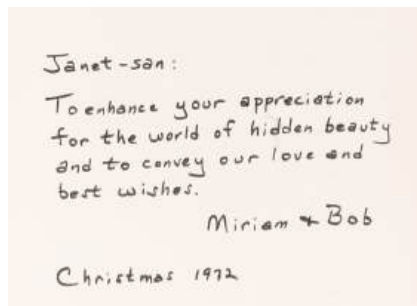 Janet-san:
To enhance your appreciation
for the world of hidden beauty
and to convey our love and
best wishes.
Miriam & Bob
Christmas 1972